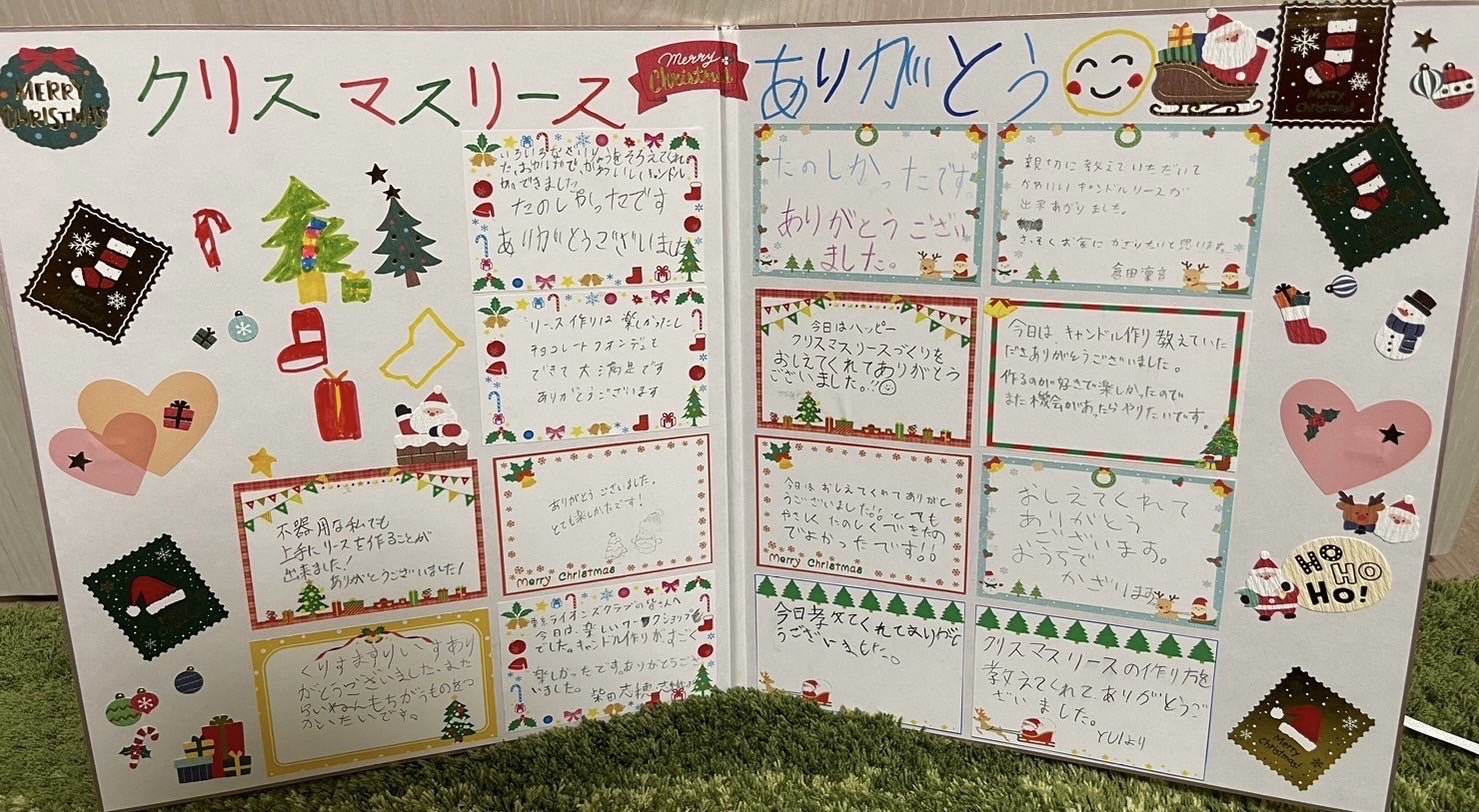 MERRY
CHRISTMAS
クリスマスリース
Merry
Christmas
ありがとう
Merry
Christmas!
いろいろなざいりょうをそろえてくれ
た、おかげで、かわいいキャンドル
が、できました
たのしかったです
ありがとうございました
リース作りは楽しかったし
チョコレートフォンデュも
できて大満足です
ありがとうございます
不器用な私でも
上手にリースを作ることが
出来ました!
ありがとうございました!
ありがとうございました。
とても楽しかたです!
Merry Christmas
くりすますりいすあり
がとうございました。また
らいねんもちがうものをつ
かいたいです。
東京ライオンズクラブの皆さんへ
今日は、楽しいワークショップ
でした。キャンドル作りがすごく
楽しかったです。ありがとうござ
いました。
たのしかったです
ありがとうござい
ました。
親切に教えていただいて
かわいいキャンドルリースが
出来あがりました。
さっそくお家にかざりたいと思います。
今日はハッピー
クリスマスリースづくりを
おしえてくれてありがとう
ございました。!!
今日は、キャンドル作り教えていた
だきありがとうございました。
作るのが好きで楽しかったので
また機会があったらやりたいです。
今日はおしえてくれてありがと
うございました!! とても
やさしくたのしくできたの
でよかったです!!
Merry Christmas
おしえてくれて
ありがとう
ございます。
おうちで
かざります
今日教えてくれてありがと
うございました。
クリスマスリースの作り方を
教えてくれてありがとうご
ざいました。
YUIより
HO
HO
HO!
Merry
Christmas!